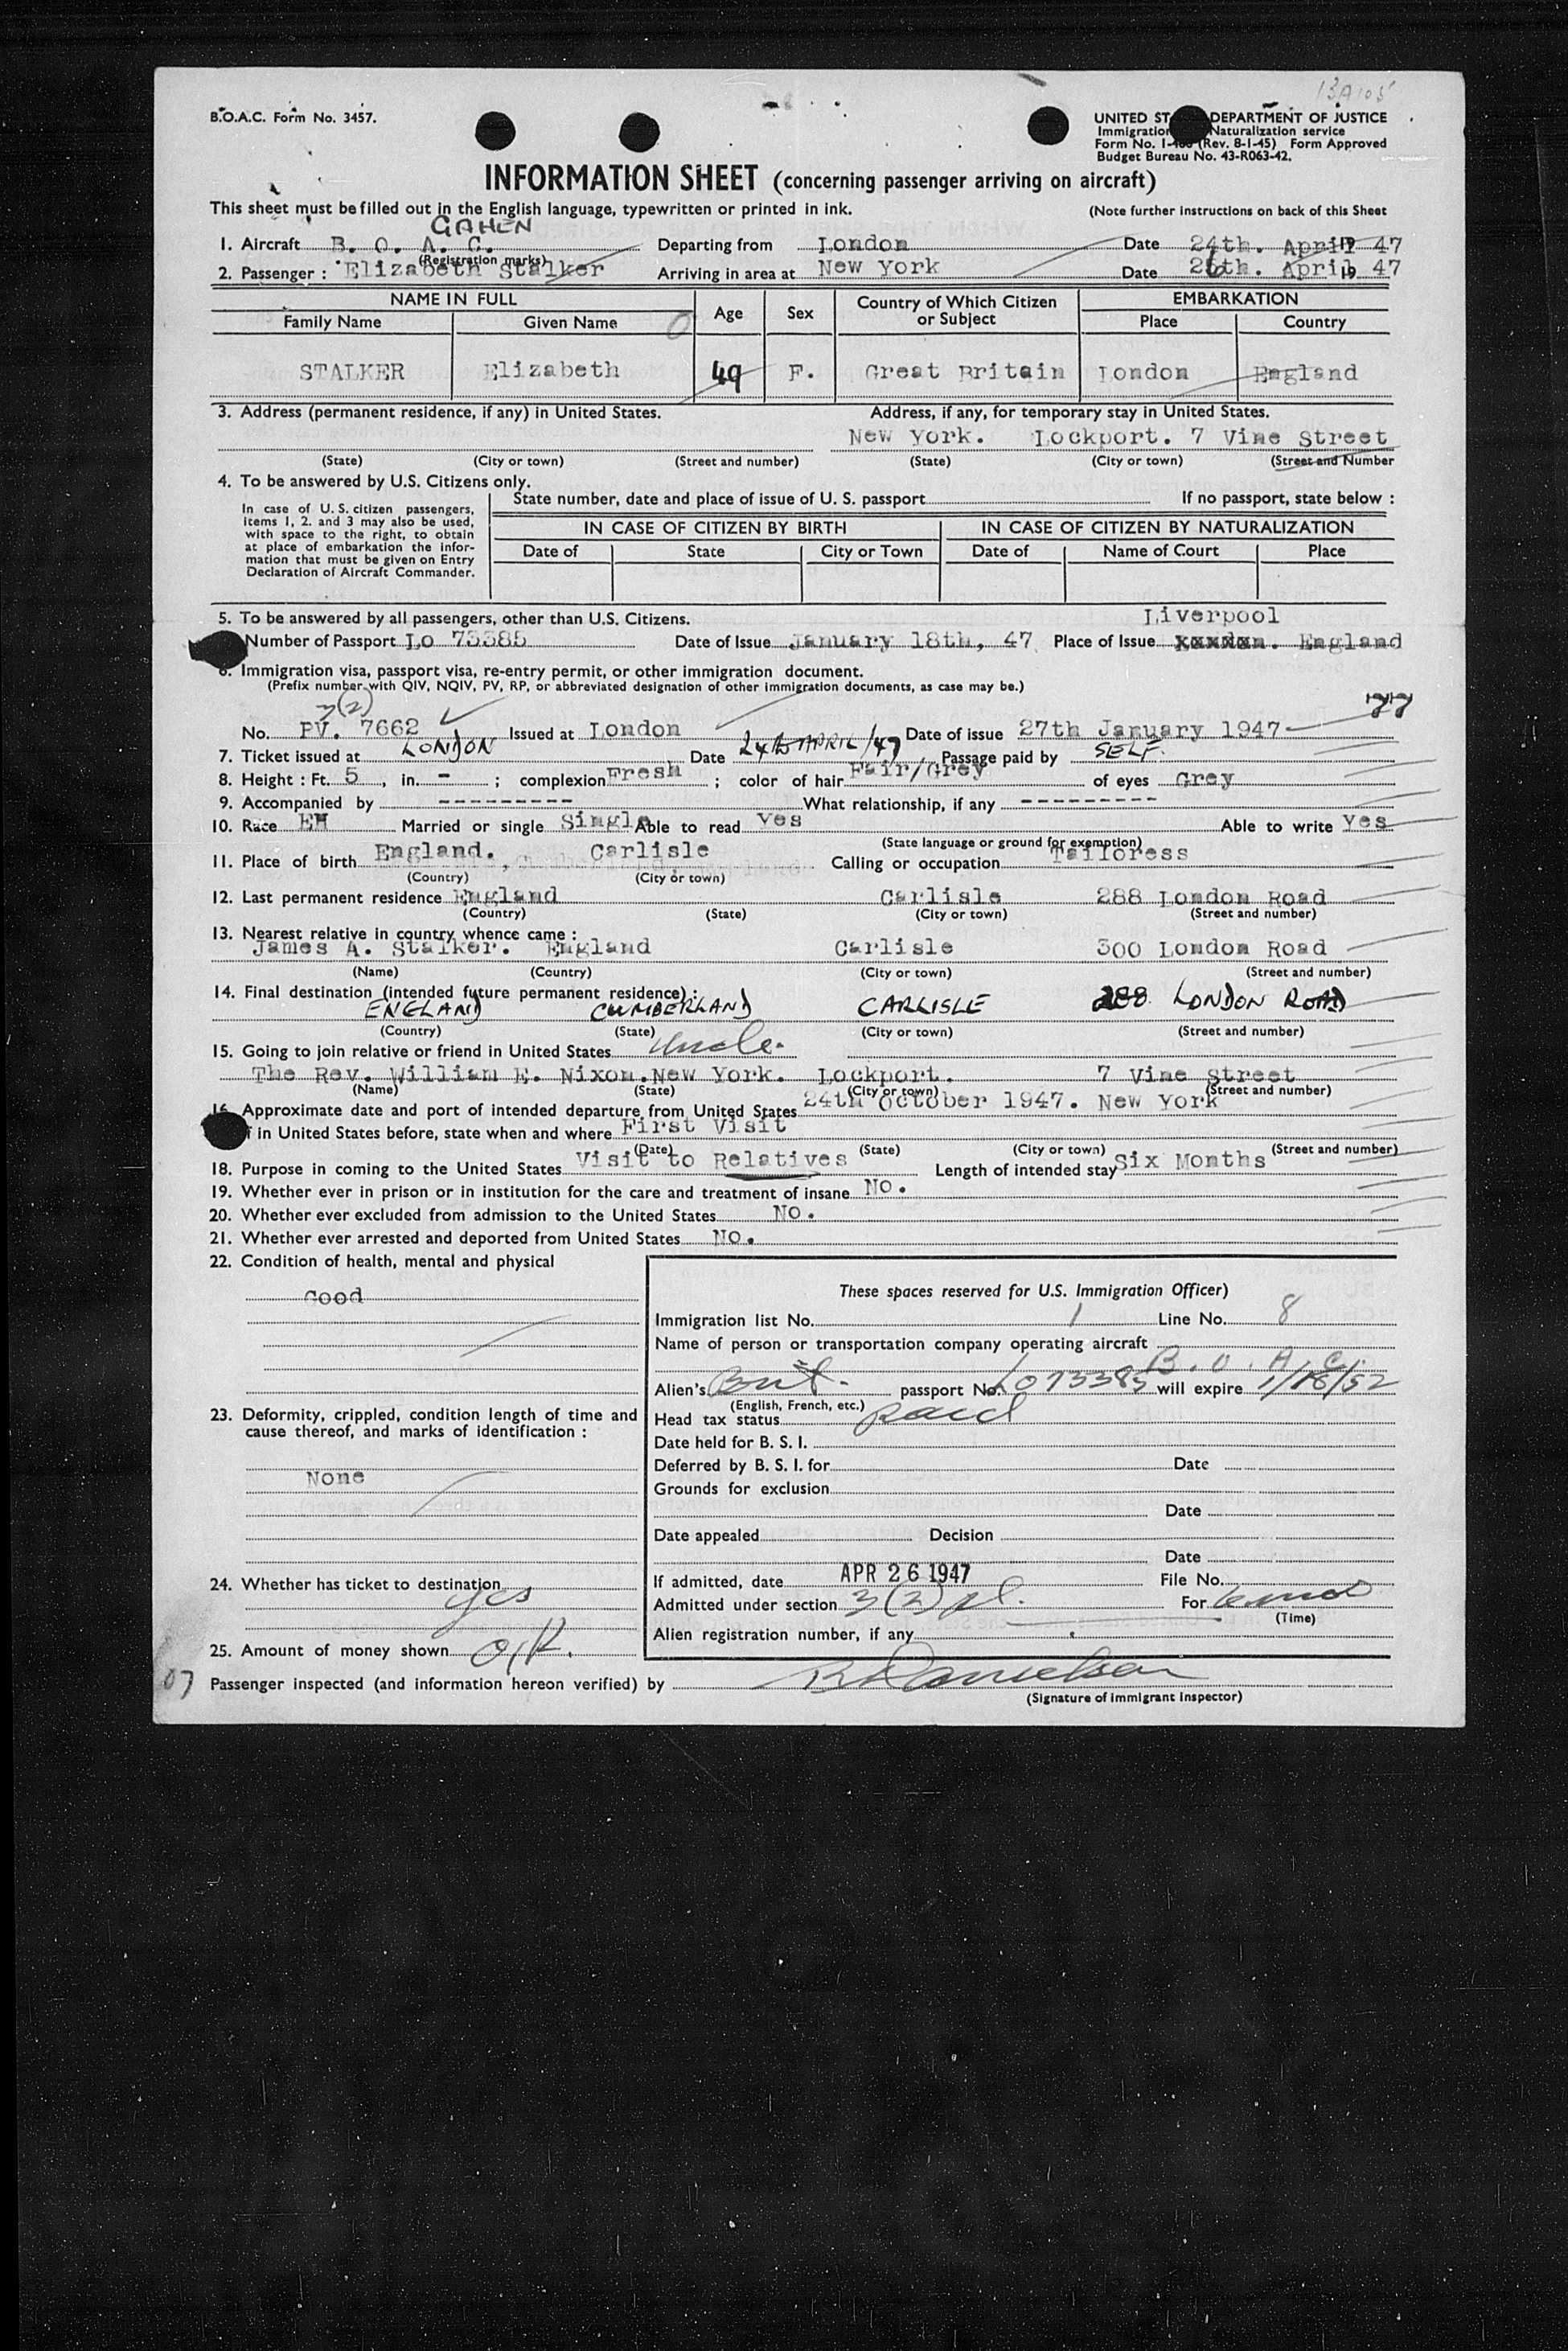 13A105
B.O.A.C. Form No. 3457.
UNITED ST DEPARTMENT OF JUSTICE
Immigration Naturalization service
Form No. I-466 (Rev. 8-1-45) Form Approved
Budget Bureau No. 43-R063-42.
INFORMATION SHEET (concerning passenger arriving on aircraft)
This sheet must be filled out in the English language, typewritten or printed in ink. (Note further instructions on back of this Sheet
GAHEN
1. Aircraft B. O. A. C. Departing from London Date 24th. April 19 47
(Registration marks)
2. Passenger : Elizabeth Stalker Arriving in area at New York Date 26th. April 19 47
NAME IN FULL Age Sex Country of Which Citizen or Subject EMBARKATION
Family Name Given Name Place Country
STALKER Elizabeth 49 F. Great Britain London England
3. Address (permanent residence, if any) in United States. Address, if any, for temporary stay in United States.
New York. Lockport. 7 Vine Street
(State) (City or town) (Street and number) (State) (City or town) (Street and Number
4. To be answered by U.S. Citizens only.
State number, date and place of issue of U. S. passport If no passport, state below :
In case of U. S. citizen passengers,
items 1, 2. and 3 may also be used,
with space to the right, to obtain
at place of embarkation the infor-
mation that must be given on Entry
Declaration of Aircraft Commander.
IN CASE OF CITIZEN BY BIRTH IN CASE OF CITIZEN BY NATURALIZATION
Date of State City or Town Date of Name of Court Place
5. To be answered by all passengers, other than U.S. Citizens. Liverpool
Number of Passport Lo 73385 Date of Issue January 18th, 47 Place of Issue England
6. Immigration visa, passport visa, re-entry permit, or other immigration document.
(Prefix number with QIV, NQIV, PV, RP, or abbreviated designation of other immigration documents, as case may be.)
3(2) 77
No. PV. 7662 Issued at London Date of issue 27th January 1947
7. Ticket issued at LONDON Date 24th APRIL/47 Passage paid by SELF.
8. Height : Ft. 5 , in. - ; complexion Fresh ; color of hair Fair/Grey of eyes Grey
9. Accompanied by --------- What relationship, if any ---------
10. Race EH Married or single Single Able to read Yes Able to write Yes
(State language or ground for exemption)
11. Place of birth England. Carlisle Calling or occupation Tailoress
(Country) (City or town)
12. Last permanent residence England Carlisle 288 London Road
(Country) (State) (City or town) (Street and number)
13. Nearest relative in country whence came :
James A. Stalker. England Carlisle 300 London Road
(Name) (Country) (City or town) (Street and number)
14. Final destination (intended future permanent residence) :
ENGLAND CUMBERLAND CARLISLE 288 LONDON ROAD
(Country) (State) (City or town) (Street and number)
15. Going to join relative or friend in United States Uncle.
The Rev. William E. Nixon. New York. Lockport. 7 Vine Street
(Name) (State) (City or town) (Street and number)
16. Approximate date and port of intended departure from United States 24th October 1947. New York
f in United States before, state when and where First Visit
(Date) (State) (City or town) (Street and number)
18. Purpose in coming to the United States Visit to Relatives Length of intended stay Six Months
19. Whether ever in prison or in institution for the care and treatment of insane No.
20. Whether ever excluded from admission to the United States No.
21. Whether ever arrested and deported from United States No.
22. Condition of health, mental and physical
Good
23. Deformity, crippled, condition length of time and
cause thereof, and marks of identification :
None
24. Whether has ticket to destination yes
25. Amount of money shown O.K.
These spaces reserved for U.S. Immigration Officer)
Immigration list No. 1 Line No. 8
Name of person or transportation company operating aircraft
B. O. A. C.
Alien's Brit. passport No. Lo73385 will expire 1/18/52
(English, French, etc.)
Head tax status paid
Date held for B. S. I.
Deferred by B. S. I. for Date
Grounds for exclusion
Date
Date appealed Decision
Date
If admitted, date APR 26 1947 File No.
Admitted under section 3(2) pl. For 6 mos
(Time)
Alien registration number, if any
07 Passenger inspected (and information hereon verified) by
(Signature of immigrant inspector)